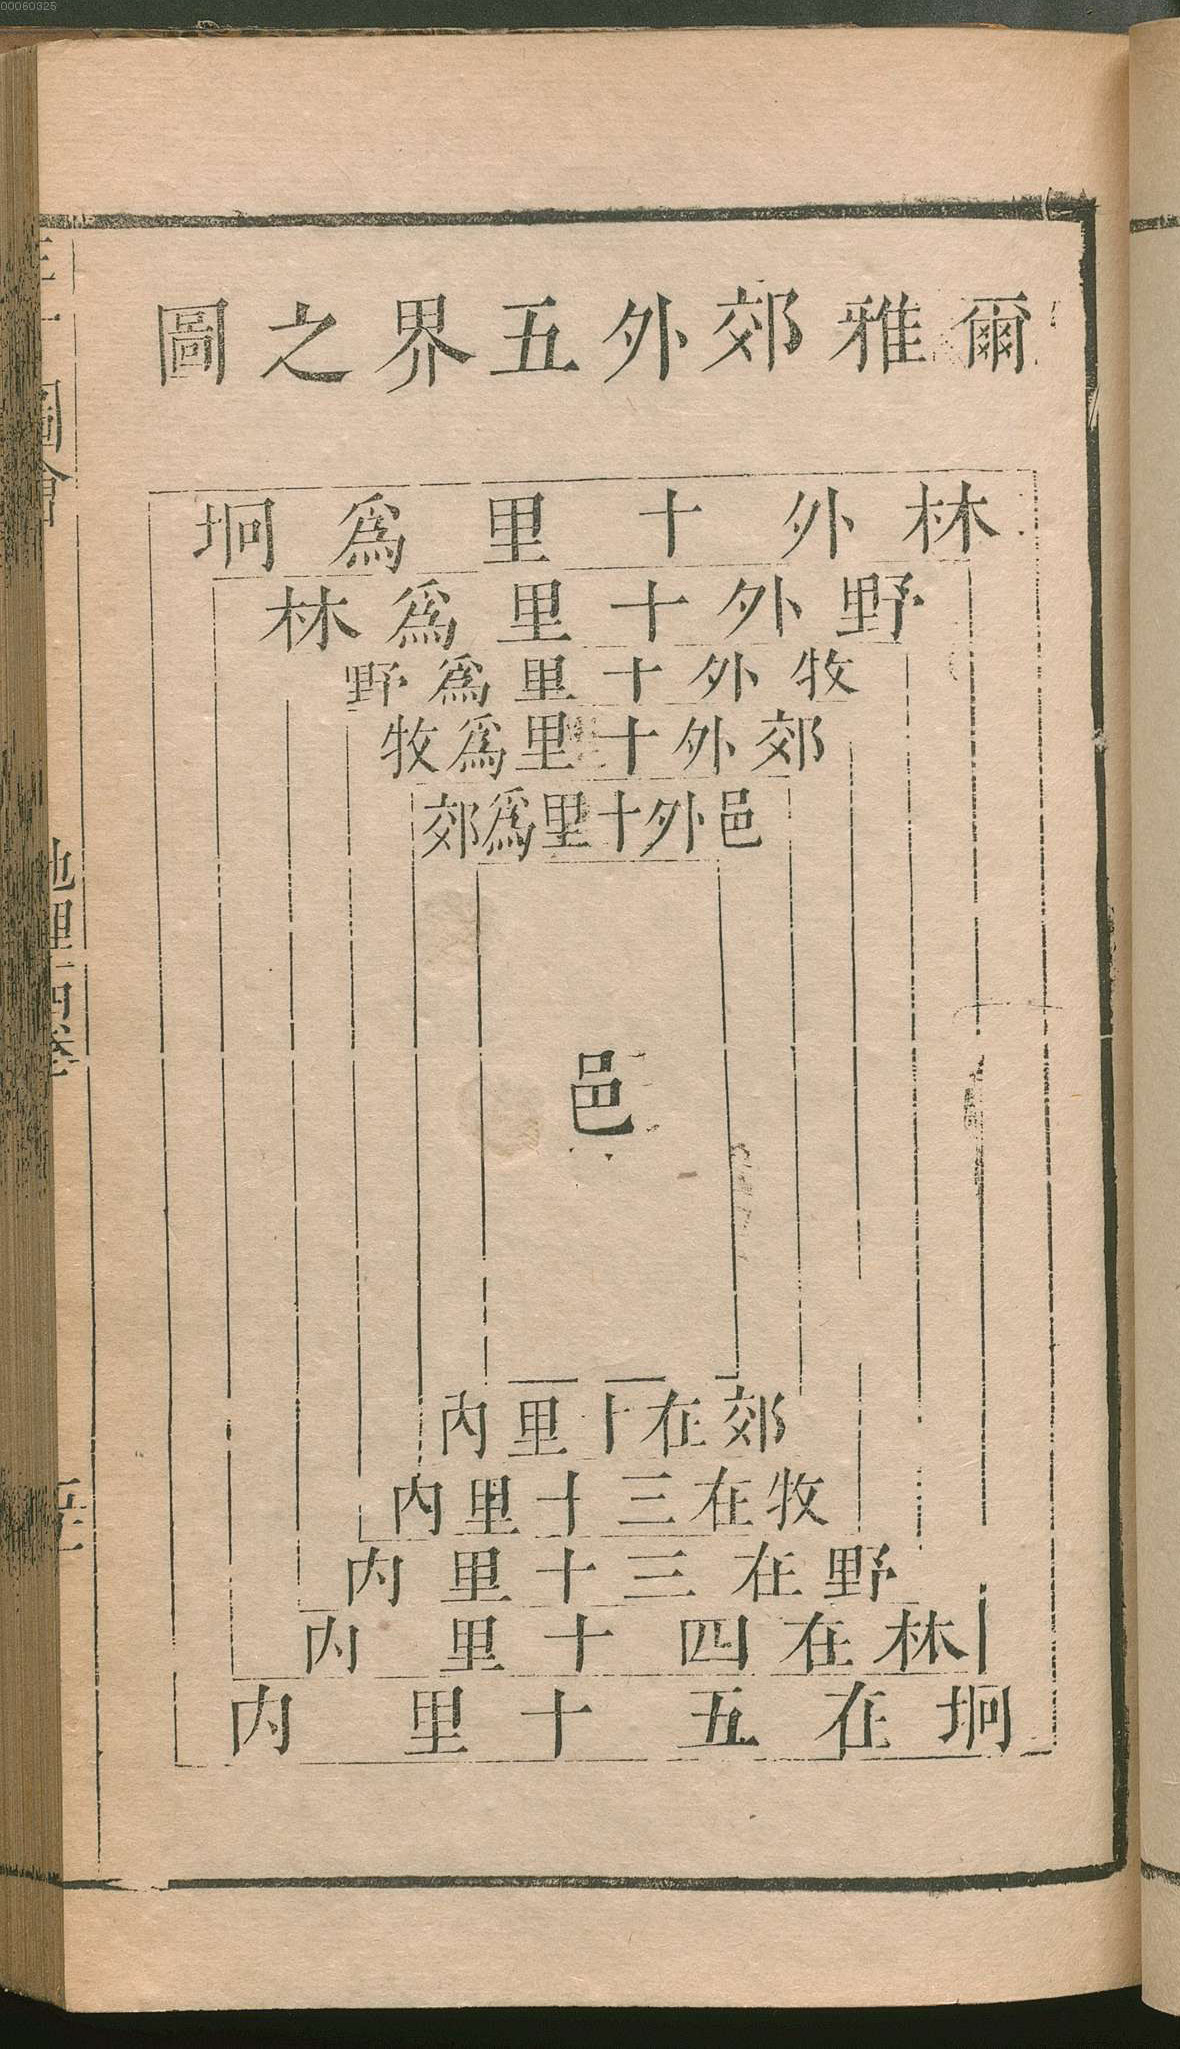 00060325
爾雅郊外五界之圖
林外十里爲坰
野外十里爲林
牧外十里爲野
郊外十里爲牧
邑外十里爲郊
邑
郊在十里内
牧在三十里内
野在三十里内
林在四十里内
坰在五十里内
圖會
地理十四卷